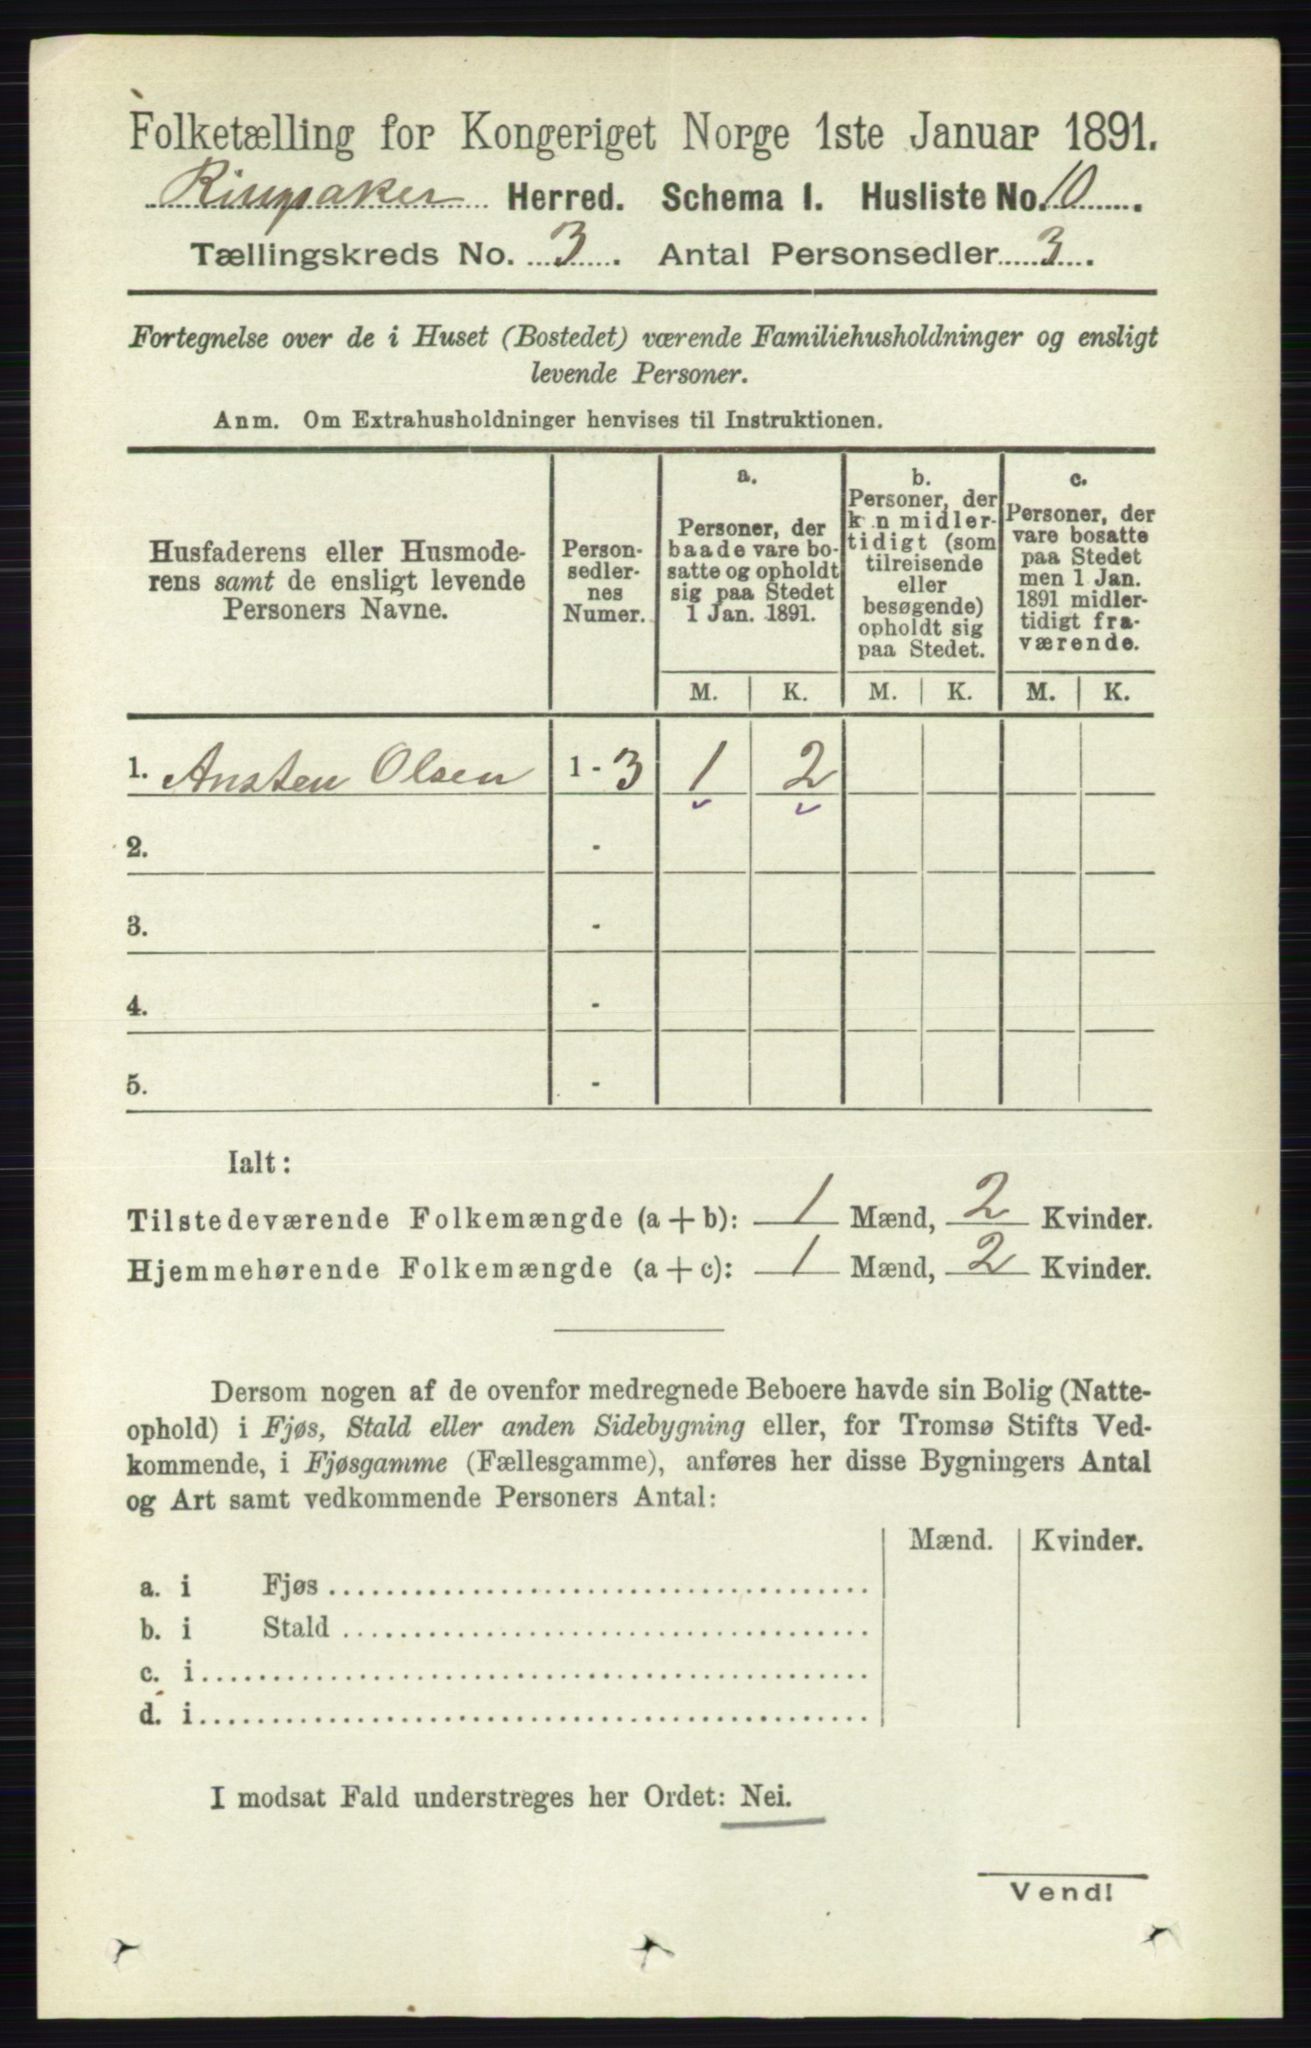 Folketælling for Kongeriget Norge 1ste Januar 1891.
Ringsaker Herred. Schema 1. Husliste No. 10
Tællingskreds No. 3. Antal Personsedler 3.
Fortegnelse over de i Huset (Bostedet) værende Familiehusholdninger og ensligt
levende Personer.
Anm. Om Extrahusholdninger henvises til Instruktionen.
Husfaderens eller Husmode-
rens samt de ensligt levende
Personers Navne.
Person-
sedler-
nes
Numer.
a.
Personer, der
baade vare bo-
satte og opholdt
sig paa Stedet
1 Jan. 1891.
b.
Personer, der
k n midler-
tidigt (som
tilreisende
eller
besøgende)
opholdt sig
paa Stedet.
c.
Personer, der
vare bosatte
paa Stedet
men 1 Jan.
1891 midler-
tidigt fra-
værende.
M. K. M. K. M. K.
1. Ansten Olsen 1 - 3 1 2
2. -
3. -
4. -
5. -
Ialt:
Tilstedeværende Folkemængde (a + b): 1 Mænd, 2 Kvinder.
Hjemmehørende Folkemængde (a + c): 1 Mænd, 2 Kvinder.
Dersom nogen af de ovenfor medregnede Beboere havde sin Bolig (Natte-
ophold) i Fjøs, Stald eller anden Sidebygning eller, for Tromsø Stifts Ved-
kommende, i Fjøsgamme (Fællesgamme), anføres her disse Bygningers Antal
og Art samt vedkommende Personers Antal:
Mænd. Kvinder.
a. i Fjøs
b. i Stald
c. i
d. i
I modsat Fald understreges her Ordet: Nei.
Vend!